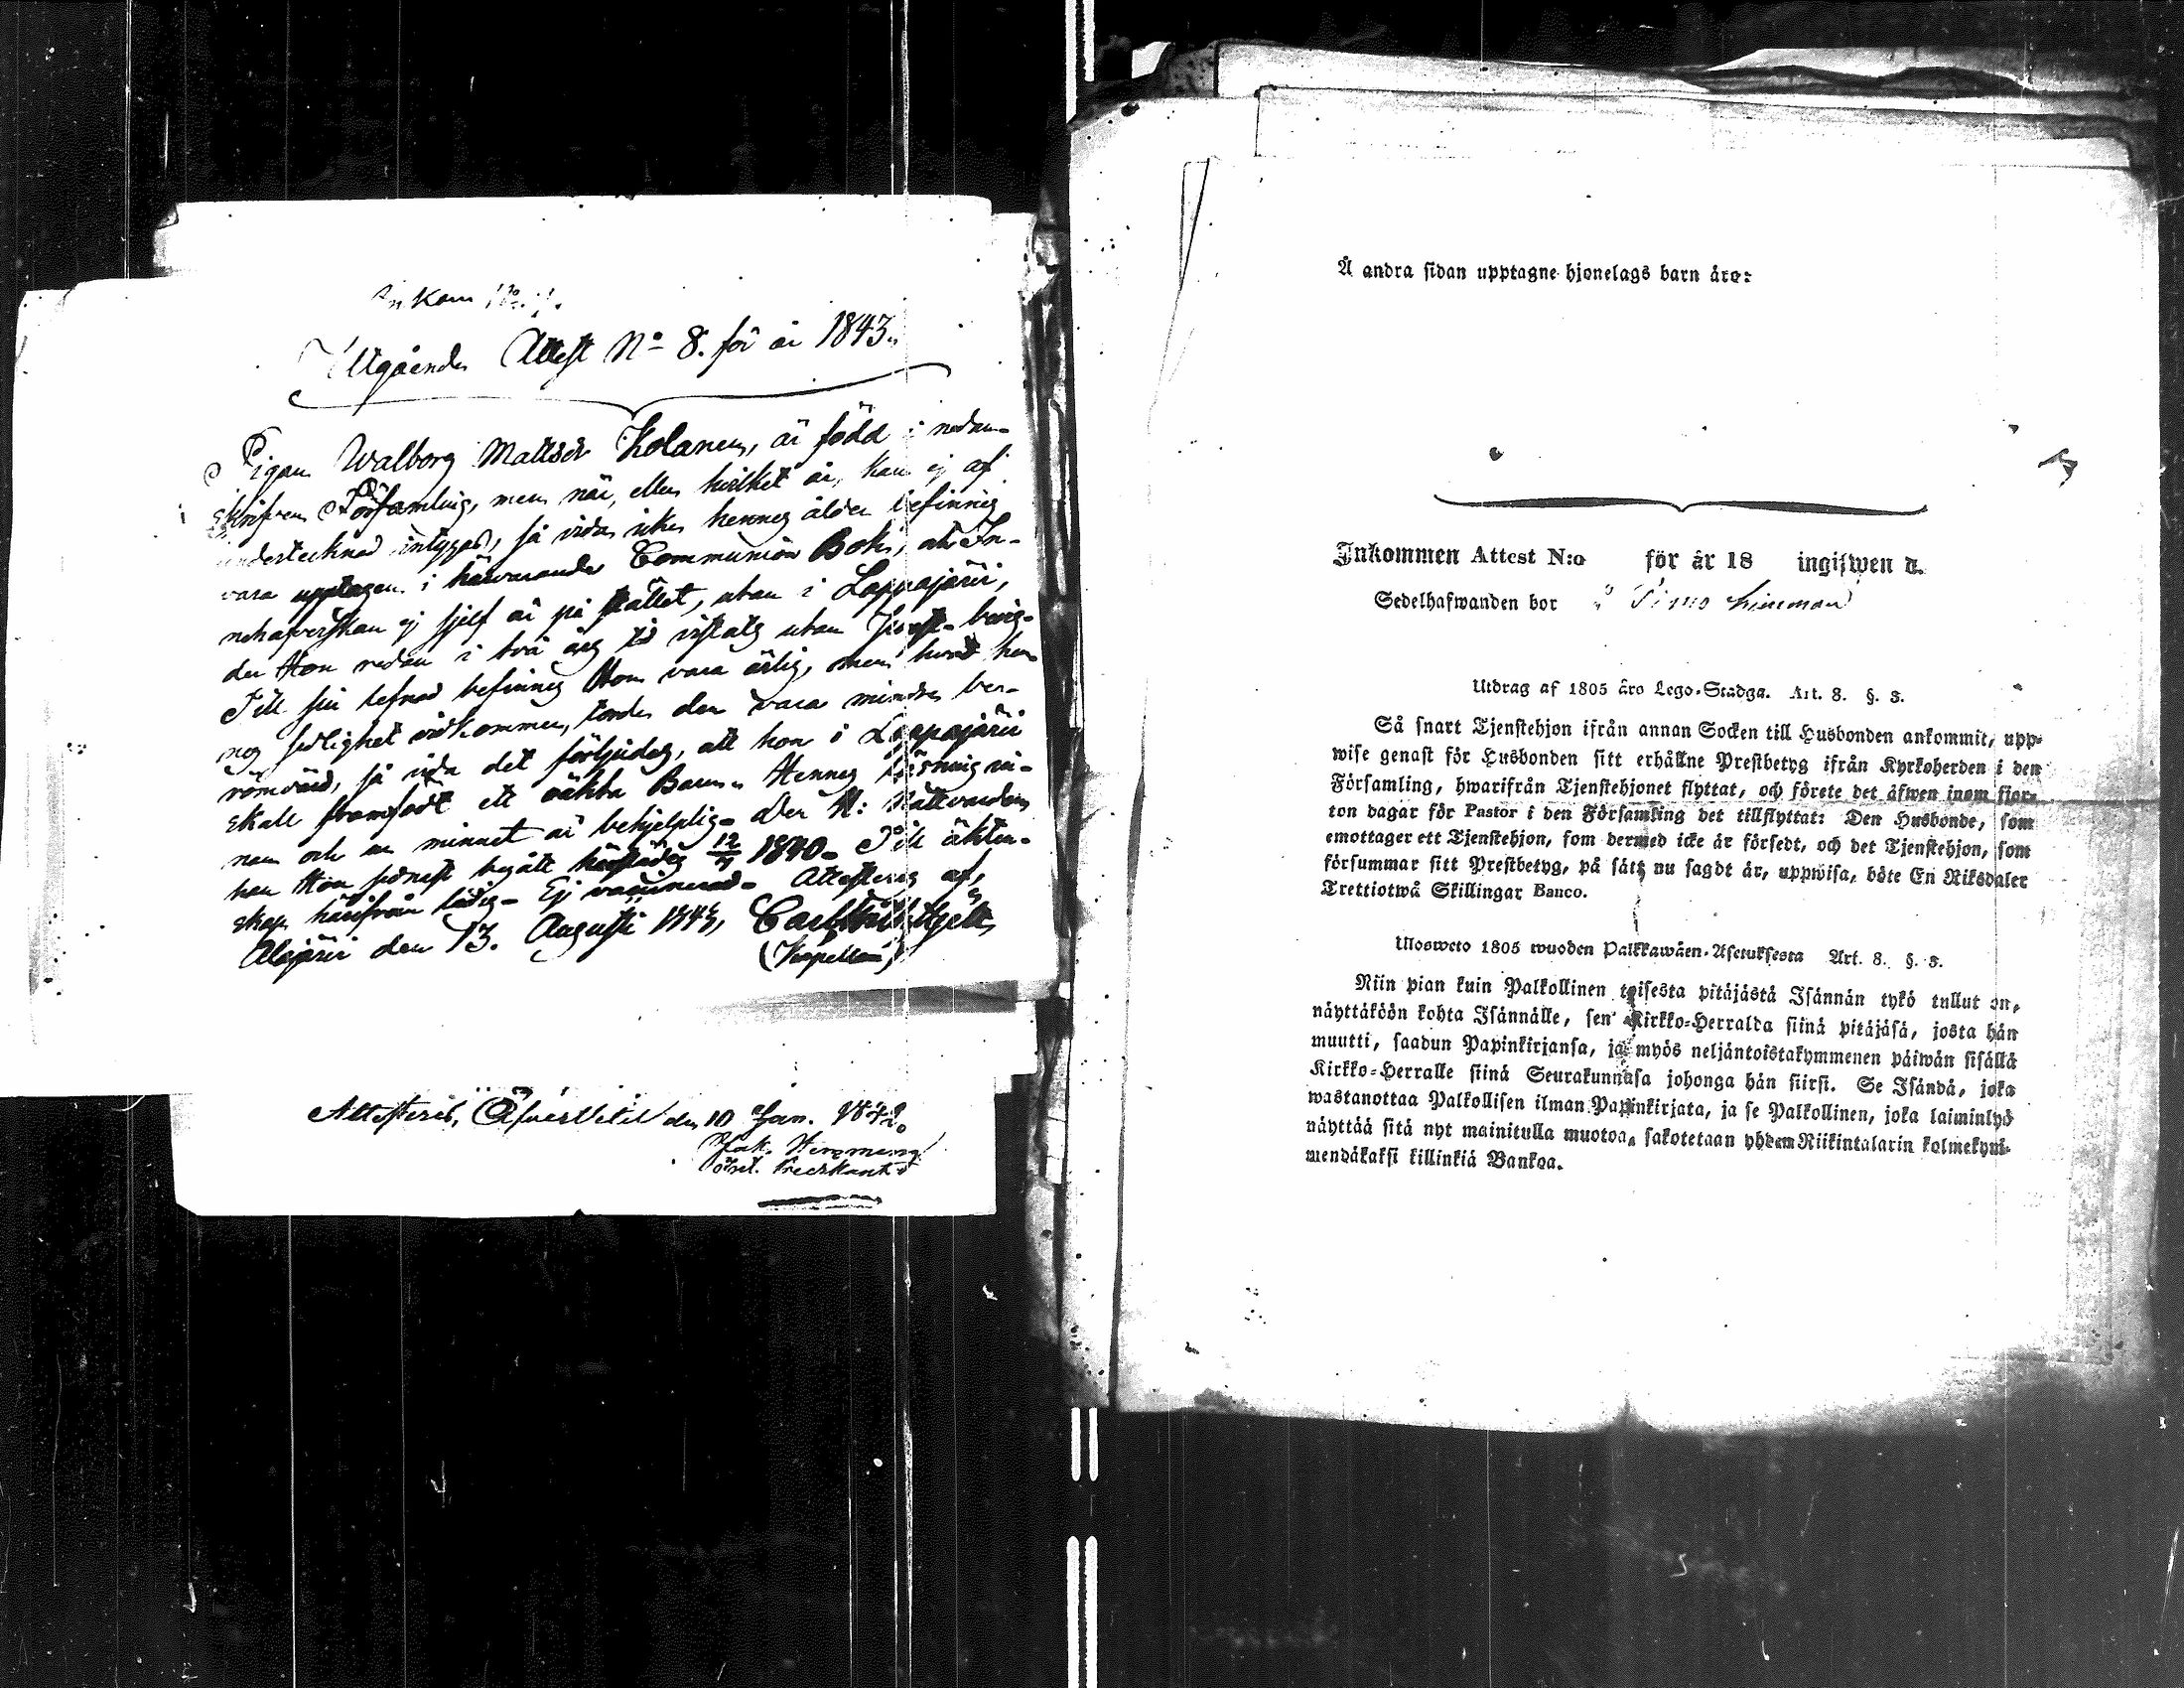 Inkom
Utgående Attest No 8. för år 1843.
Pigan Walborg Mattsdr Kolanen, är född i nedan-
skrifven Församling, men när, eller hvilket år, kan ej af
undertecknad intygas, så vida icke hennes ålder befinnes
vara upptagen i härvarande Communion Bok, at In-
nehafverskan ej sjelf är på stället, utan i Lappajärvi,
der Hon redan i två års tid vistats utan Prest-bevis-
Till sin lefnad befinnes Hon vara ärlig, men hvad hen-
nes sedlighet vidkommer, torde den vara mindre ber-
römvärd, så vida det förljudes, att hon i Lappajärvi
skall framfödt ett oäkta Barn. Hennes läsning in-
nan och ur minnet är behjelplig- Den H: Nattvarden
har Hon sednast begått härstädes 12/4 1840- Till äkten-
skap härifrån ledig- Ej vaccinerad- Attesteras af,
Alajärvi den 13. Augusti 184
(Kapellan)
Attesterib, Öfvervetil den 10 Jan. 1842.
Jak.
Å andra sidan upptagne hjonelags barn äro:
Inkommen Attest N:o för år 18 ingifwen d.
Sedelhafwanden bor å Timo
Utdrag af 1805 års Lego-Stadga. Art. 8. §. 3.
Så snart Tjenstehjon ifrån annan Socken till Husbonden ankommit, upp-
wise genast för Husbonden sitt erhållne Prestbetyg ifrån Kyrkoherden i den
Församling, hwarifrån Tjenstehjonet flyttat, och förete det äfwen inom fjor-
ton dagar för Pastor i den Församling det tillflyttat: Den Husbonde, som
emottager ett Tjenstehjon, som dermed icke är försedt, och det Tjenstehjon, som
försummar sitt Prestbetyg, på sätt nu sagdt är, uppwisa, böte En Riksdaler
Trettiotwå Skillingar Banco.
Ulosweto 1805 wuoden Palkkawäen-Asetuksesta Art. 8. §. 3.
Niin pian kuin Palkollinen toisesta pitäjästä Isännän tykö tullut on,
näyttäköön kohta Isännälle, sen Kirkko-Herralda siinä pitäjäsä, josta hän
muutti, saadun Papinkirjansa, ja myös neljäntoistakymmenen päiwän sisällä
Kirkko-Herralle siinä Seurakunnasa johonga hän siirsi. Se Isändä, joka
wastanottaa Palkollisen ilman Papinkirjata, ja se Palkollinen, joka laiminlyö
näyttää sitä nyt mainitulla muotoa, sakotetaan yhden Riikintalarin kolmekym-
mendäkaksi killinkiä Bankoa.